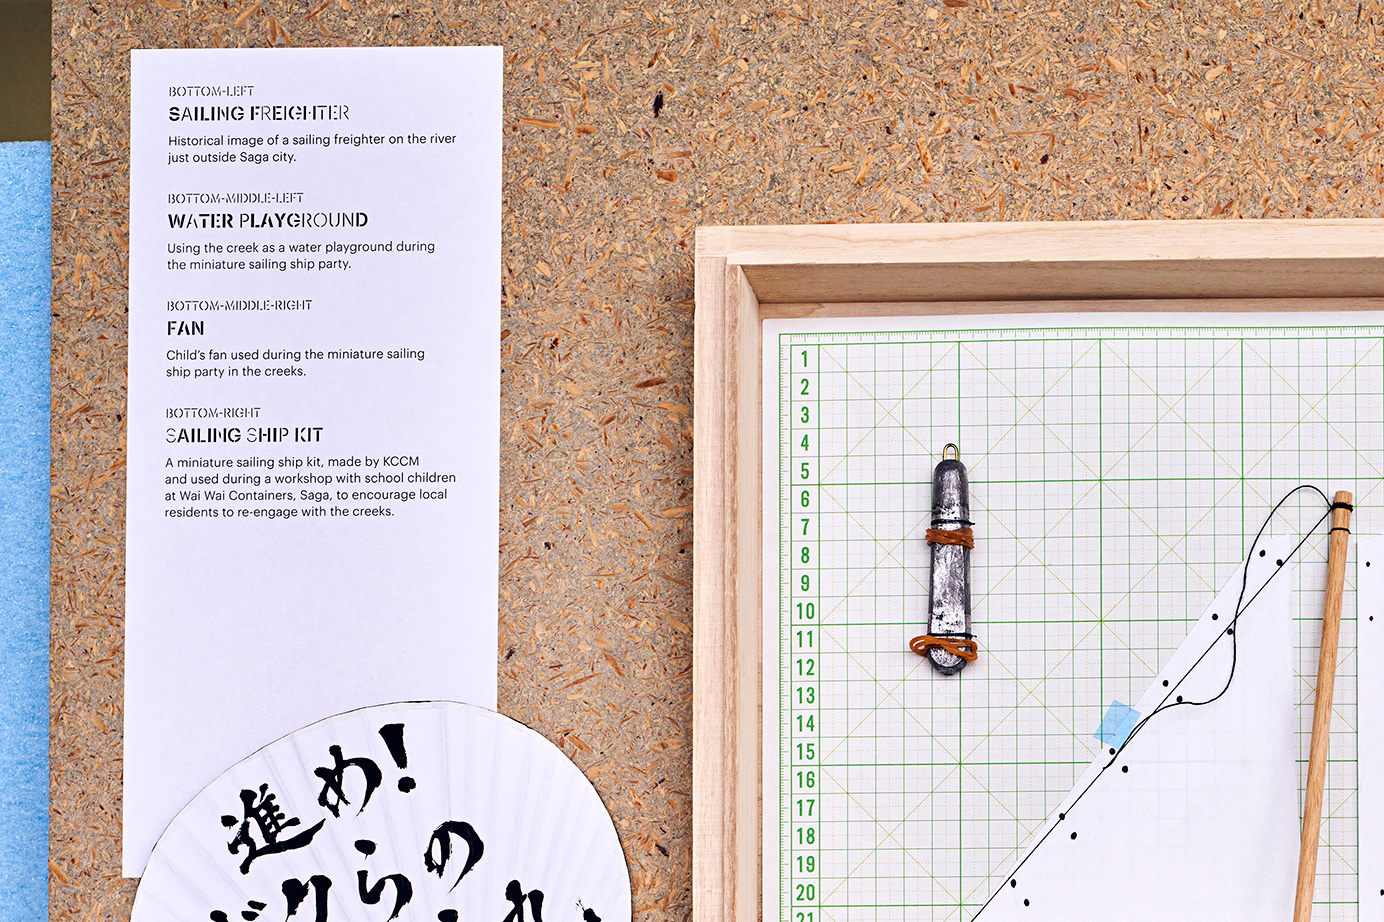 BOTTOM-LEFT
SAILING FREIGHTER
Historical image of a sailing freighter on the river
just outside Saga city.
BOTTOM-MIDDLE-LEFT
WATER PLAYGROUND
Using the creek as a water playground during
the miniature sailing ship party.
BOTTOM-MIDDLE-RIGHT
FAN
Child's fan used during the miniature sailing
ship party in the creeks.
BOTTOM-RIGHT
SAILING SHIP KIT
A miniature sailing ship kit, made by KCCM
and used during a workshop with school children
at Wai Wai Containers, Saga, to encourage local
residents to re-engage with the creeks.
進め!
らの
1
2
3
4
5
6
7
8
9
10
11
12
13
14
15
16
17
18
19
20
21